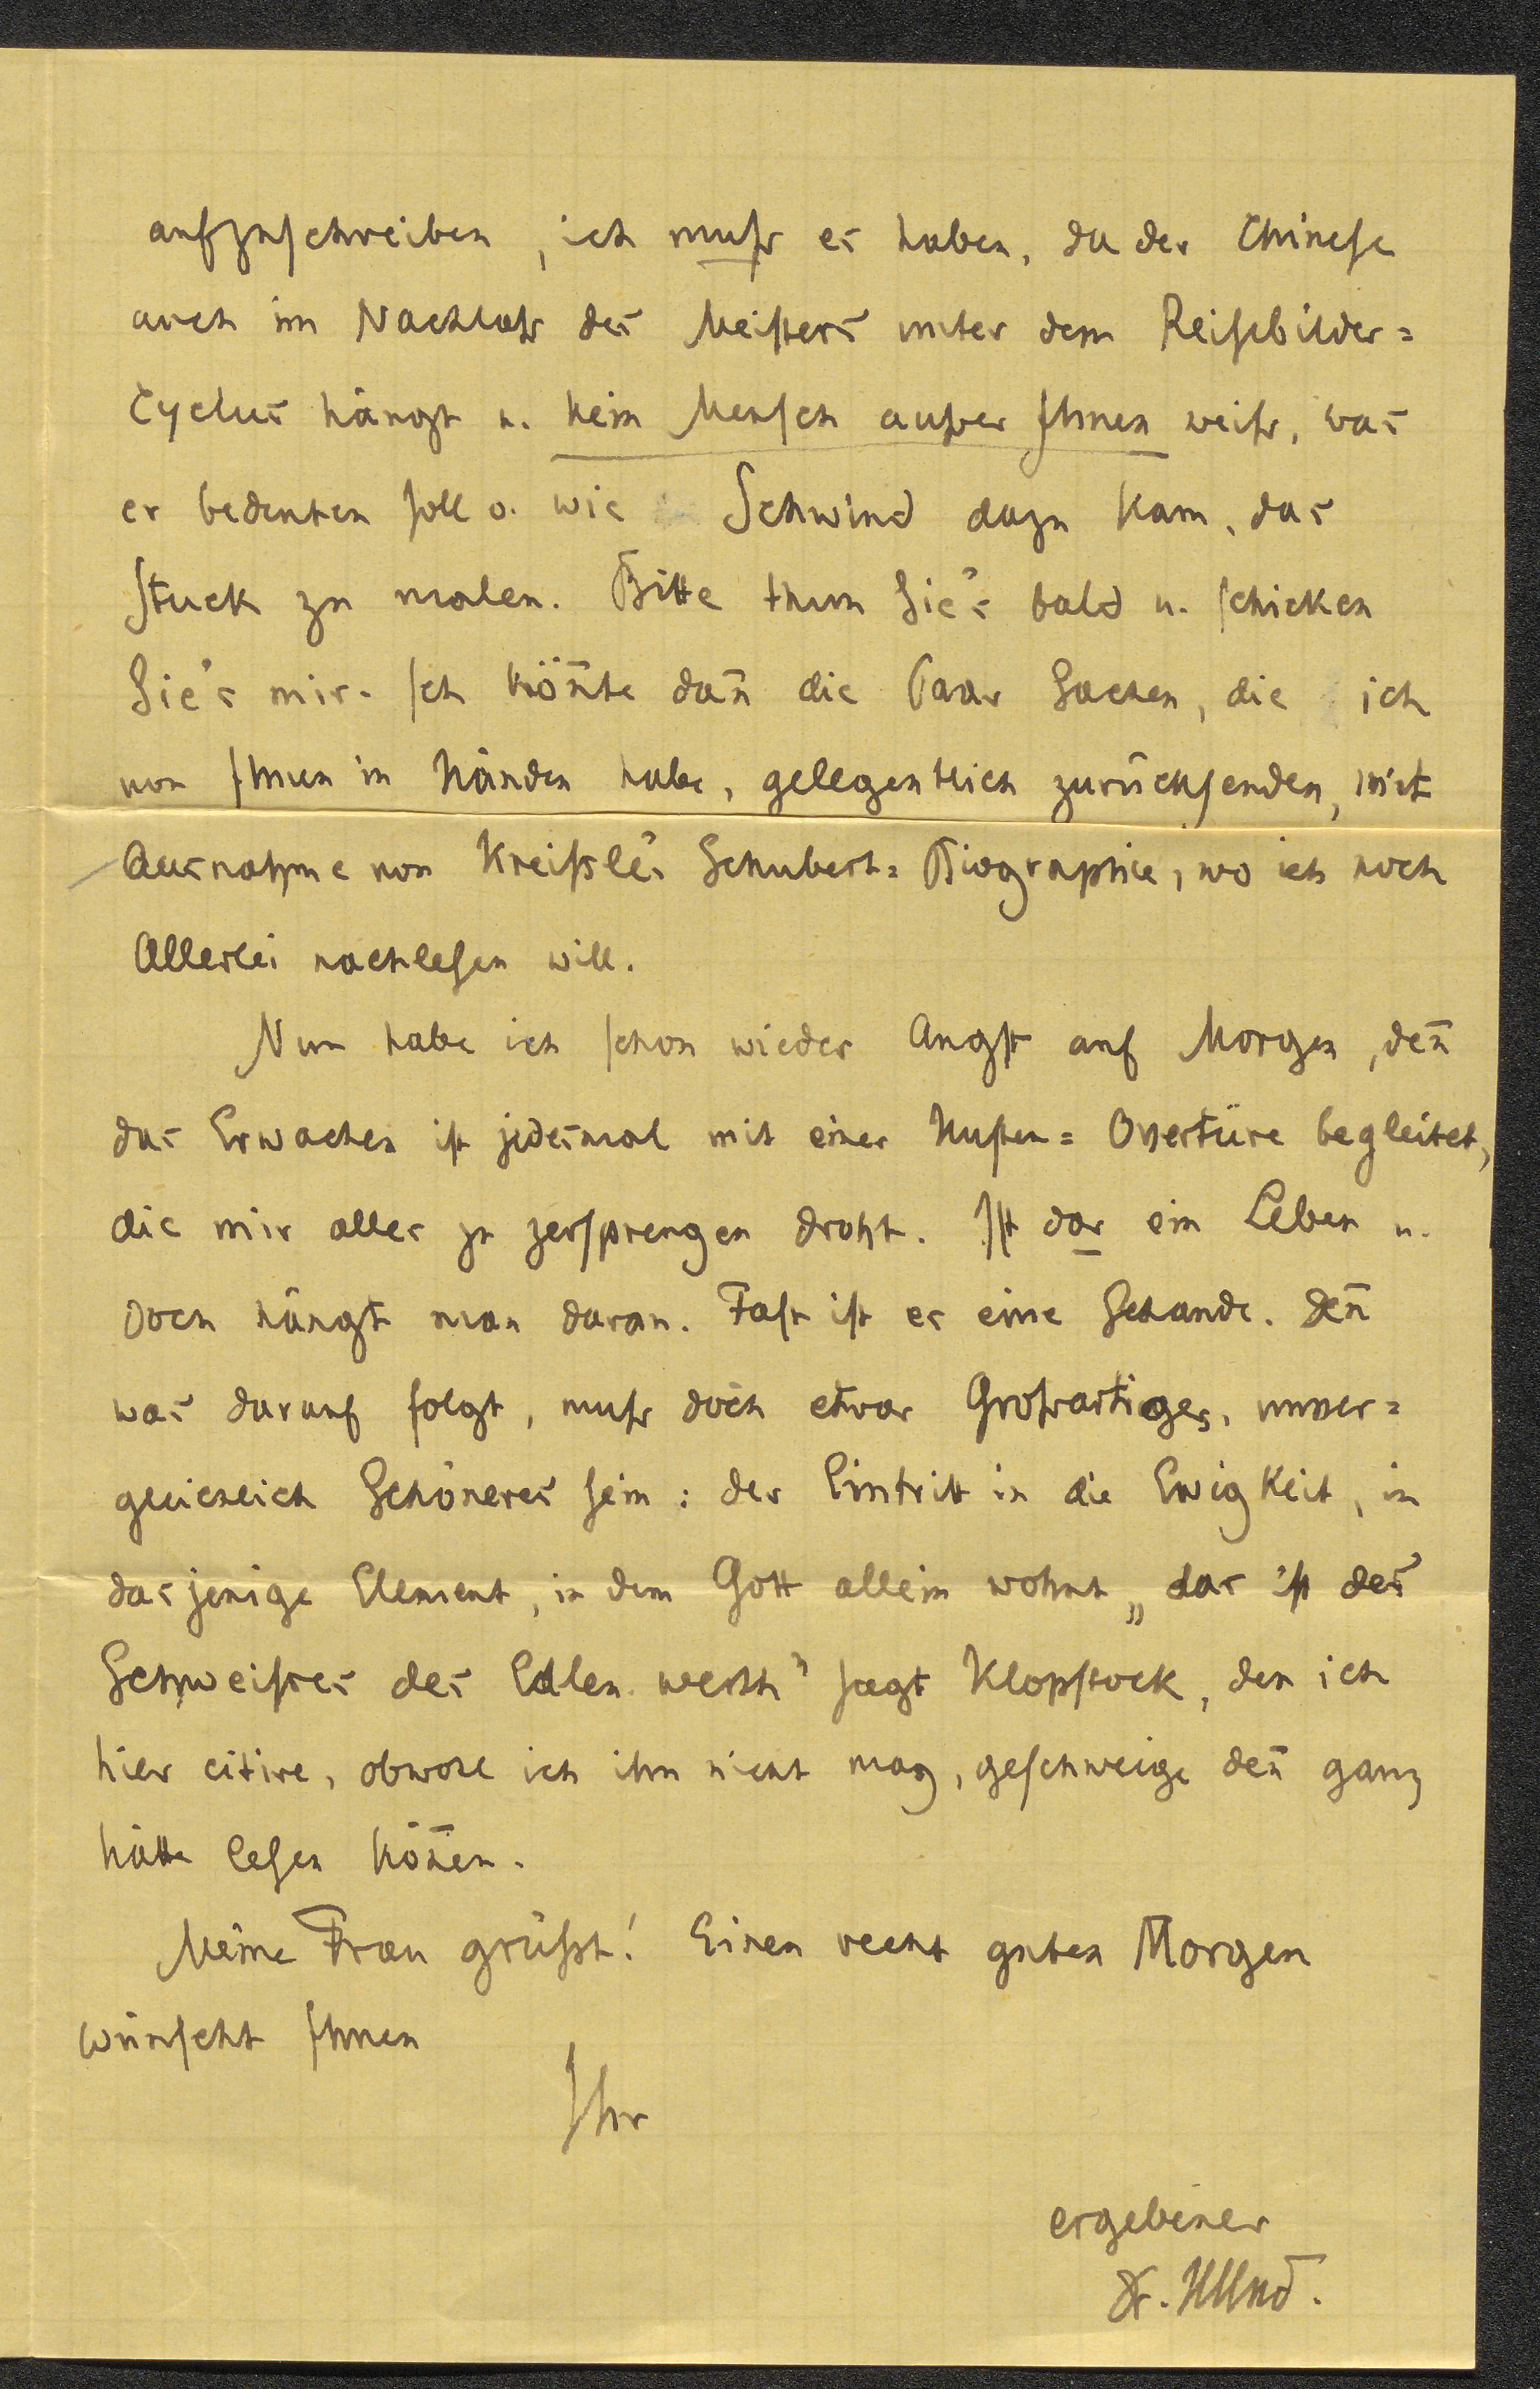 aufzuschreiben, ich muß es haben, da der Chinese
auch im Nachlaß des Meisters unter dem Reisebilder=
Cyclus hängt u. kein Mensch außer Ihnen weiß, was
er bedeuten soll o. wie Schwind dazu kam, das
Stuck zu malen. Bitte thun Sie's bald u. schicken
Sie's mir. Ich kön̄te dan̄ die Paar Sachen, die ich
von Ihnen in Händen habe, gelegentlich zurücksenden, mit
Ausnahme von Kreißle's Schubert= Biographie, wo ich noch
Allerlei nachlesen will.
Nun habe ich schon wieder Angst auf Morgen, den̄
das Erwachen ist jedesmal mit einer Husten= Overtüre begleitet,
die mir alles zu zersprengen droht. Ist das ein Leben u.
doch hängt man daran. Fast ist es eine Schande. Den̄
was darauf folgt, muß doch etwas Großartiges, unver=
gleichlich Schöneres sein: der Eintritt in die Ewigkeit, in
dasjenige Element, in dem Gott allein wohnt „das ist des
Schweißes des Edlen werth" sagt Klopstock, den ich
hier citire, obwohl ich ihn nicht mag, geschweige den̄ ganz
hätte lesen kön̄en.
Meine Frau grüßt! Einen recht guten Morgen
wünscht Ihnen
Ihr
ergebener
Dr. HHnd.